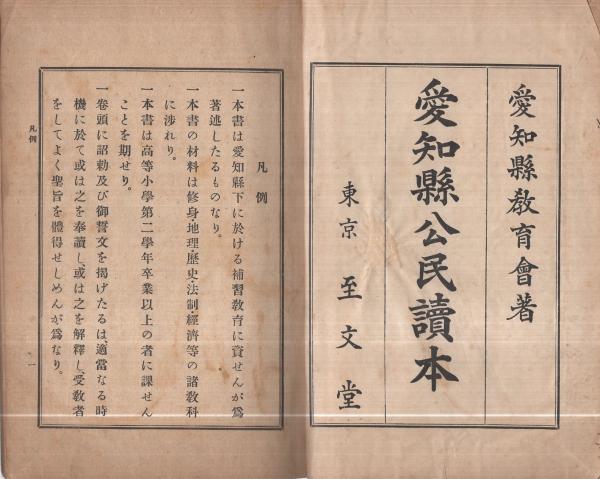 愛知縣敎育會著
愛知縣公民讀本
東京 至文堂
凡例
一本書は愛知縣下に於ける補習敎育に資せんが爲
著述したるものなり。
一本書の材料は修身・地理・歷史・法制・經濟等の諸敎科
に涉れり。
一本書は高等小學第二學年卒業以上の者に課せん
ことを期せり。
一卷頭に詔勅及び御誓文を揭げたるは、適當なる時
機に於て或は之を奉讀し、或は之を解釋し、受敎者
をしてよく聖旨を體得せしめんが爲なり。
凡例
一